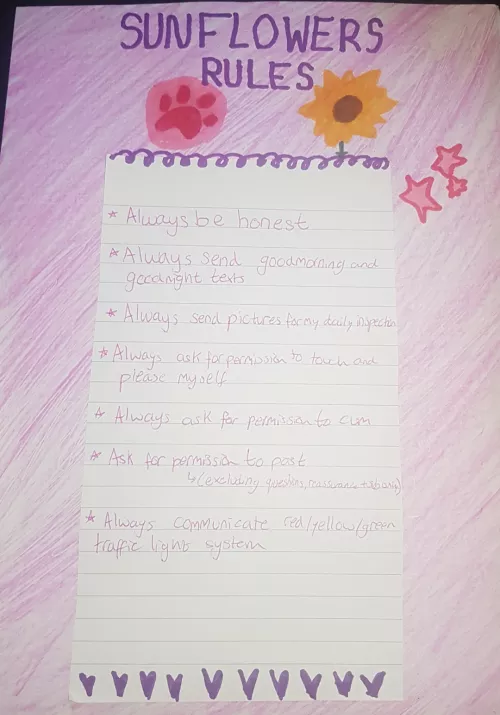 SUNFLOWERS
RULES
* Always be honest
* Always send goodmorning and
goodnight texts
* Always send pictures for my daily inspection
* Always ask for permission to touch and
please myself
* Always ask for permission to cum
* Ask for permission to post
↳(excluding questions, reassurance +
* Always communicate red/yellow/green
traffic light system